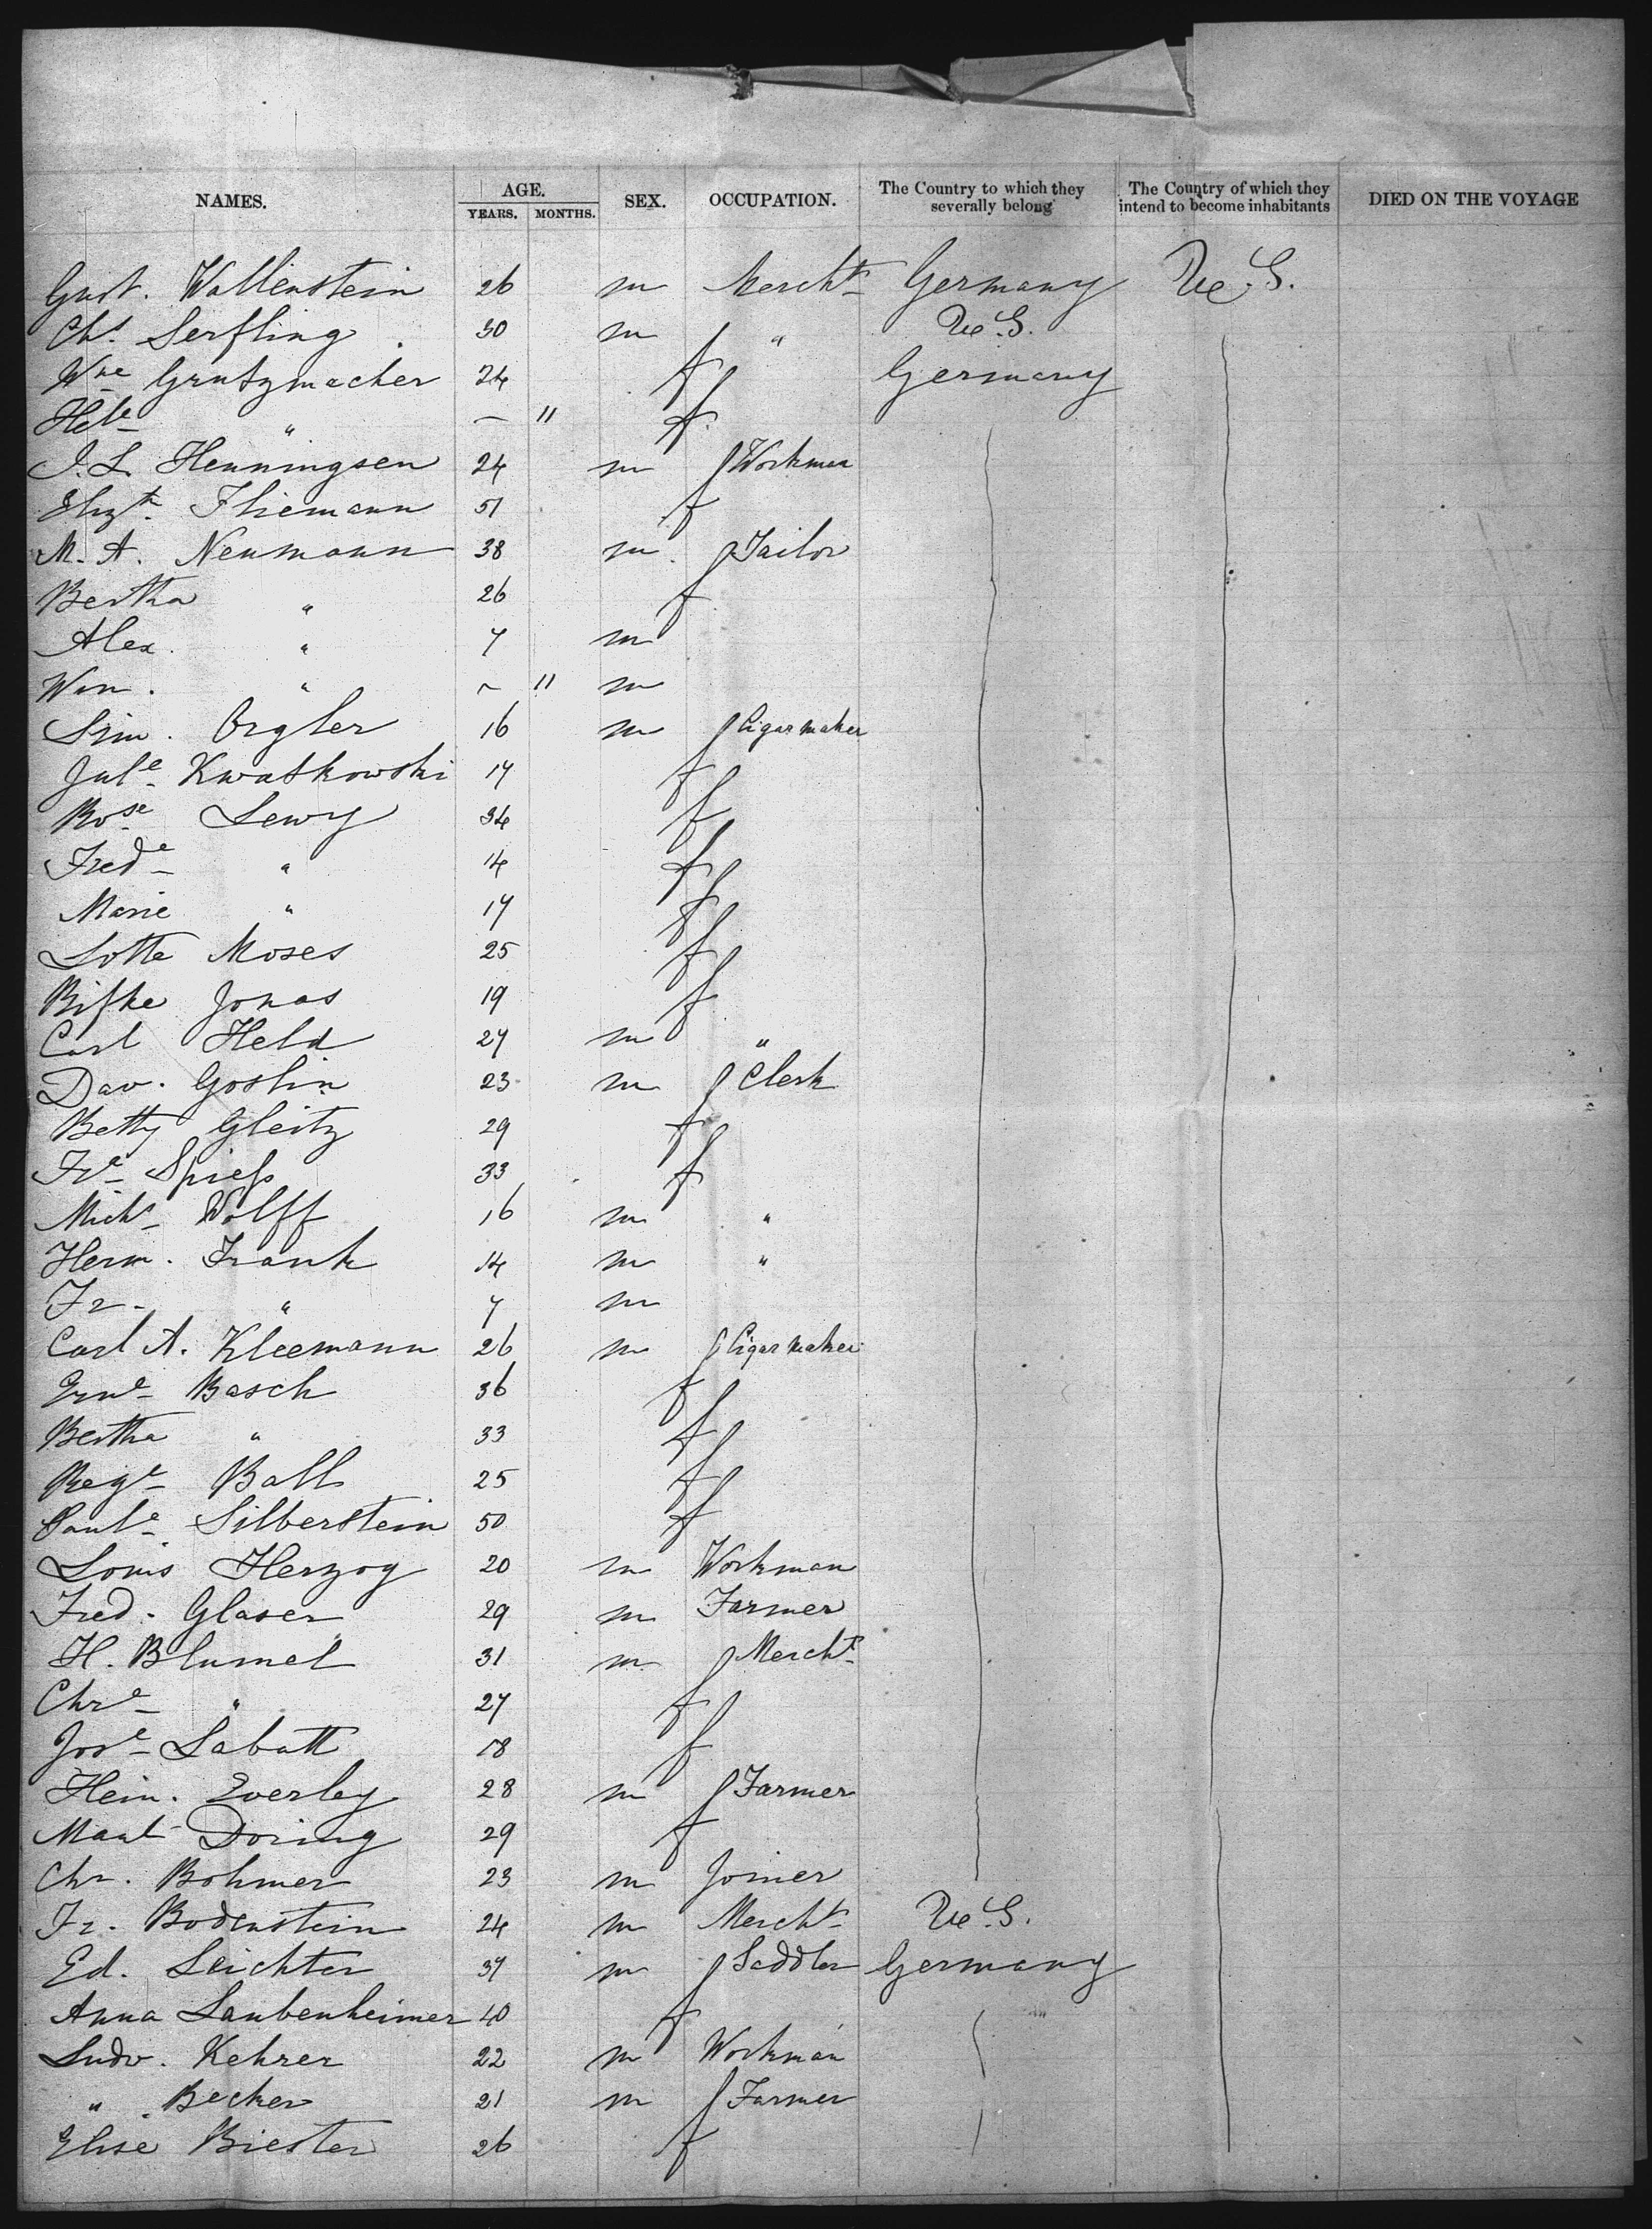 NAMES. AGE. YEARS. MONTHS. SEX. OCCUPATION. The Country to which they severally belong The Country of which they intend to become inhabitants DIED ON THE VOYAGE
Gust. Wallenstein 26 m Mercht Germany U.S.
Chs. Serfling 30 m " U.S.
Wne Grutzmacher 24 f Germany
Hele " – 11 f
J. L. Henningsen 24 m Workman
Elizth. Thiemann 51 f
M. A. Neumann 38 m Tailor
Bertha " 26 f
Alex. " 7 m
Wm. " – 11 m
Sim. Orgler 16 m Cigarmaker
Jule Kwatkowski 17 f
Rose Lewy 34 f
Frede " 14 f
Marie " 17 f
Lotte Moses 25 f
Rifke Jonas 19 f
Carl Held 27 m "
Dav. Goslin 23 m Clerk
Betty Gleitz 29 f
Fre Spiess 33 f
Michs Wolff 16 m "
Herm. Frank 14 m "
Fr. " 7 m
Carl A. Kleemann 26 m Cigarmaker
Erne Basch 36 f
Bertha " 33 f
Rege Ball 25 f
Paule Silberstein 50 f
Louis Herzog 20 m Workman
Fred. Glaser 29 m Farmer
H. Blumel 31 m Mercht
Chre " 27 f
Jose Labatt 18 f
Hein. Everley 28 m Farmer
Doring 29 f
Chr. Bohmer 23 m Joiner
Fr. Bodenstein 24 m Mercht U.S.
Ed. Leichter 37 m Saddler Germany
Anna Laubenheimer 40 f
Ludw. Kehrer 22 m Workman
" Becker 21 m Farmer
Elise Biester 26 f